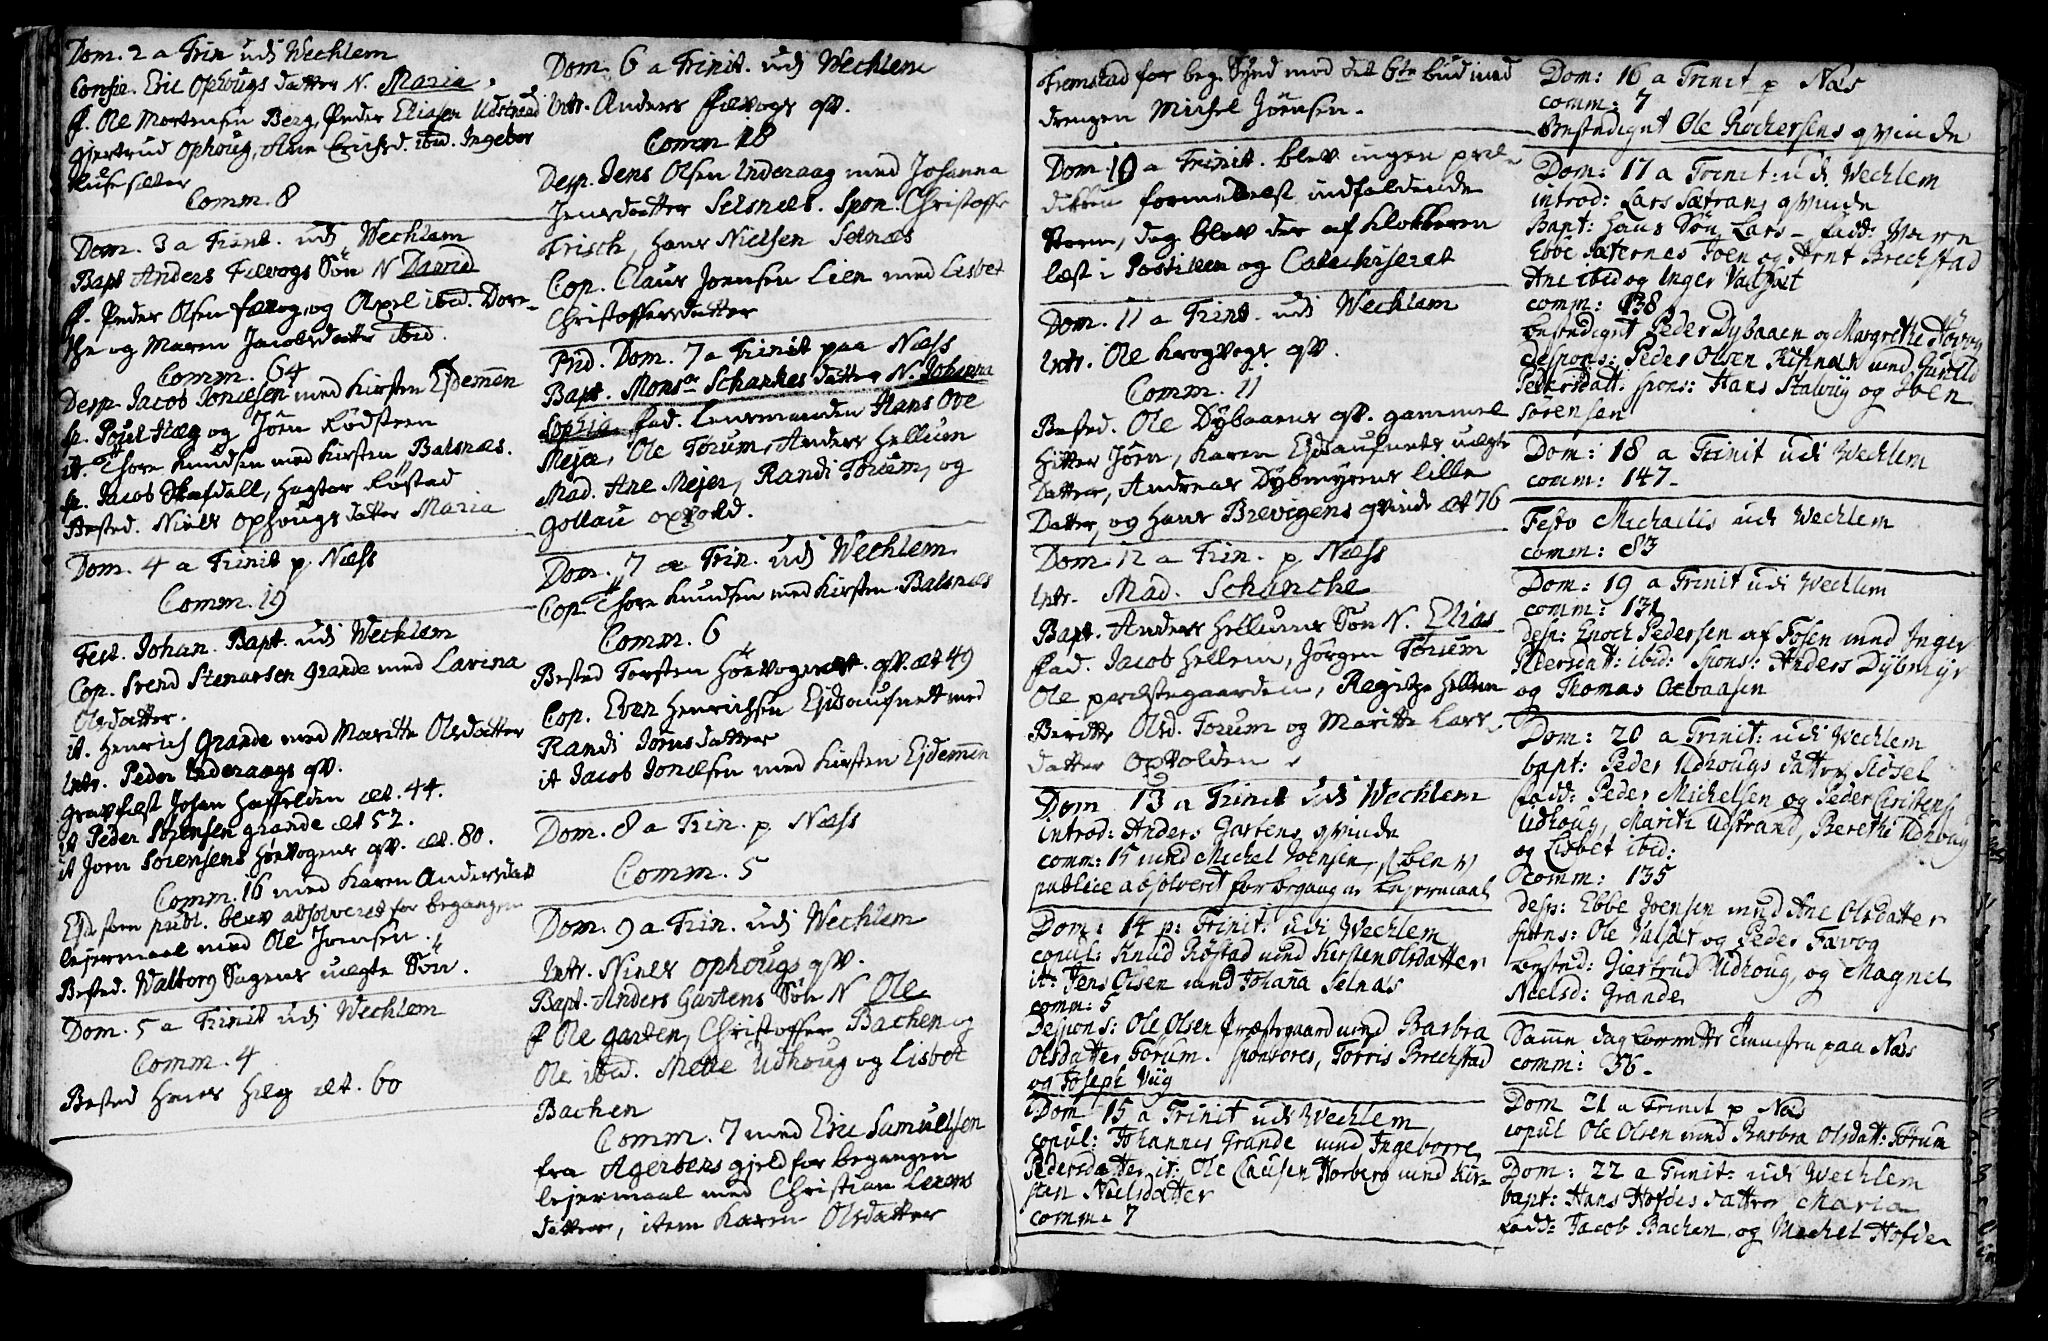 Dom. 2 a Trin udj Wechlem
Confir. Eric Ophougs datter N. Maria,
f. Ole Mortensen Berg, Peder Eliasen Udstrand
Giertrud Ophoug, Ane Erichsd. ibid. Ingebor
Husesæter
Comm. 8
Dom. 3 a Trinit. udj Wechlem
Bapt Anders Fævogs Søn N David
f. Peder Olsen fævog, og Olüf ibid. Dore-
the og Maren Jacobsdatter ibid.
Comm. 64
Desp. Jacob Jonæsen med Kirsten Ejdemen
sp. Poüel Hæg og Jörn Rødsteen
it. Thore Knudsen med Kirsten Balsnæs.
sp. Jacob Skafdall, Hagtor Røstad
Bested. Niels Ophougs datter Maria
Dom. 4 a Trinit p. Næss
Comm. 19
Fest. Johan. Bapt. udj Wechlem
Cop. Svend Stenersen Grande med Lavina
Olsdatter.
it. Henrich Grande med Maritte Olsdatter
Intr. Peder Inderaags qv.
Gravfæst Johan Haffelden æt. 44.
it Peder Sörensen grande æt 52.
it Jorn Sorensens Høevogens qv. æt. 80.
Comm. 16 med Karen Andersdat
Ejd som publ. blev absolveret for begangen
lejermaal med Ole Jonsen.
Bested. Walborg Sagens uægte Søn.
Dom. 5 a Trinit udj Wechlem
Comm. 4
Bested Hans Hæg æt. 60
Dom. 6 a Trinit. udj Wechlem
Intr. Anders Fævogs qv.
Comm 18
Desp. Jens Olsen Inderaag med Johanna
Jensdatter Selsnæs. Spon. Christoffr
Frisch, Hans Nielsen Selnæs
Cop. Claus Joensen Lien med Lisbet
Christoffersdatter
Prid. Dom. 7 a Trinit paa Næss
Bapt. Monsr Schankes datter N. Johanna
Sophia fad. Lensmanden Hans Ove
Mejer, Ole Torum, Anders Hellum
Mad. Ane Mejer, Randi Torum, og
Gollau opvold.
Dom. 7 a Trin. udj Wechlem
Cop. Thore Knudsen med Kirsten Balsnæs
Comm. 6
Bested Torsten Høevogens qv. æt 49
Cop. Even Henrichsen Ejdsaufnett med
Randi Jonsdatter
it Jacob Jonæsen med Kirsten Ejdemen
Dom. 8 a Trin. p. Næss
Comm. 5
Dom. 9 a Trin. udj Wechlem
Intr. Niels Ophougs qv.
Bapt. Anders Gartens Søn N Ole
f Ole garten, Christoffer Bachen og
Ole ibid. Mette Udhoug og Lisbet
Bachen
Comm. 7 med Eric Samuelsen
fra Agerbers gield for begangen
lejermaal med Christian Lexons
datter, item Karen Olsdatter
Fremstad for beg. Synd mod det 6te bud med
drengen Michel Jörnsen.
Dom. 10 a Trinit. blev ingen præ-
diken formedelst indfaldende
Storm, dog blev der af Klokkeren
læst i Postillen og Catechiseret
Dom. 11 a Trinit. udi Wechlem
Intr. Ole Krogvogs qv.
Comm. 11
Bested. Ole Dybaaens qv. gammel
Hitter Jörn, Karen Ejdsaufnets uægte
Datter, Andreas Dybmyrens lille
Datter, og Hans Brevigens qvinde æt 76
Dom. 12 a Trin. p. Næss
Intr. Mad. Schancke
Bapt. Anders Hellums Søn N. Elias
Fad. Jacob Hellem, Jörgen Torum
Ole præstegaarden, Regitze Hellem
Beritte Olsd. Torum og Maritte Lars
datter Opvolden
Dom 13 a Trinit udi Wechlem
introd: Anders Gartens qvinde
comm: 15 med Michel Joensen,
publice absolveret for begangen Lejermaal
Dom: 14 p: Trinit: udi Wechlem
copul: Knud Røstad med Kirsten Olsdatter
it: Jens Olsen med Johana Selnæs
comm: 5
Despons: Ole Olsen Præstegaard med Barbra
Olsdatter Torum. Sponsores, Torris Brechstad
og Joseph Viig
Dom 15 a Trinit udi Wechlem
copul: Johannes Grande med Ingeborre
Pedersdatter, it: Ole Clausen Horberg med Kir-
sten Nielsdatter
comm. 7
Dom: 16 a Trinit p Næs
comm: 7
Bestedignt Ole Rochersens qvinde
Dom: 17 a Trinit: udi Wechlem
introd: Lars Sætrans qvinde
Bapt: Hans Søn Lars - fadd: Maren
Ebbe Sæternes Joen og Arnt Brechstad
Ane ibid og Inger Vatset
comm: 138
bestedignt Peder Dybaaen og Margrethe Høvog
Despons: Peder Olsen Risnæs med Gurild
Pedersdatt: Spons: Hans Stalvig og Iben
Sørensen
Dom: 18 a Trinit udi Wechlem
comm: 147.
Festo Michaelis udi Wechlem
comm: 83
Dom: 19 a Trinit udi Wechlem
comm: 131
desp: Enoch Pedersen af Fosen med Inger
Pedersdatt: ibid: Spons: Anders Dybmyr
og Thomas Oxvaasen
Dom: 20 a Trinit: udi Wechlem
bapt: Peder Udhougs datter Sidsel
fadd: Peder Michelsen og Peder Christens
Udhoug, Marith Ustrand, Berethe Udhoug
og Lisbet ibid:
comm: 135
desp: Ebbe Joensen med Ane Olsdatter
spons: Ole Valset og Peder Favog
bested: Giertrud Udhoug, og Magnel
Neelsd: Grande
Samme dag forrette Tienisten paa Næs
comm: 36.
Dom 21 a Trinit p Næs
copul Ole Olsen med Barbra Olsdatt: Torum
Dom: 22 a Trinit: udi Wechlem
bapt: Hans Hofdes datter Maria
fadd: Jacob Bachen, og Mechel Hofde